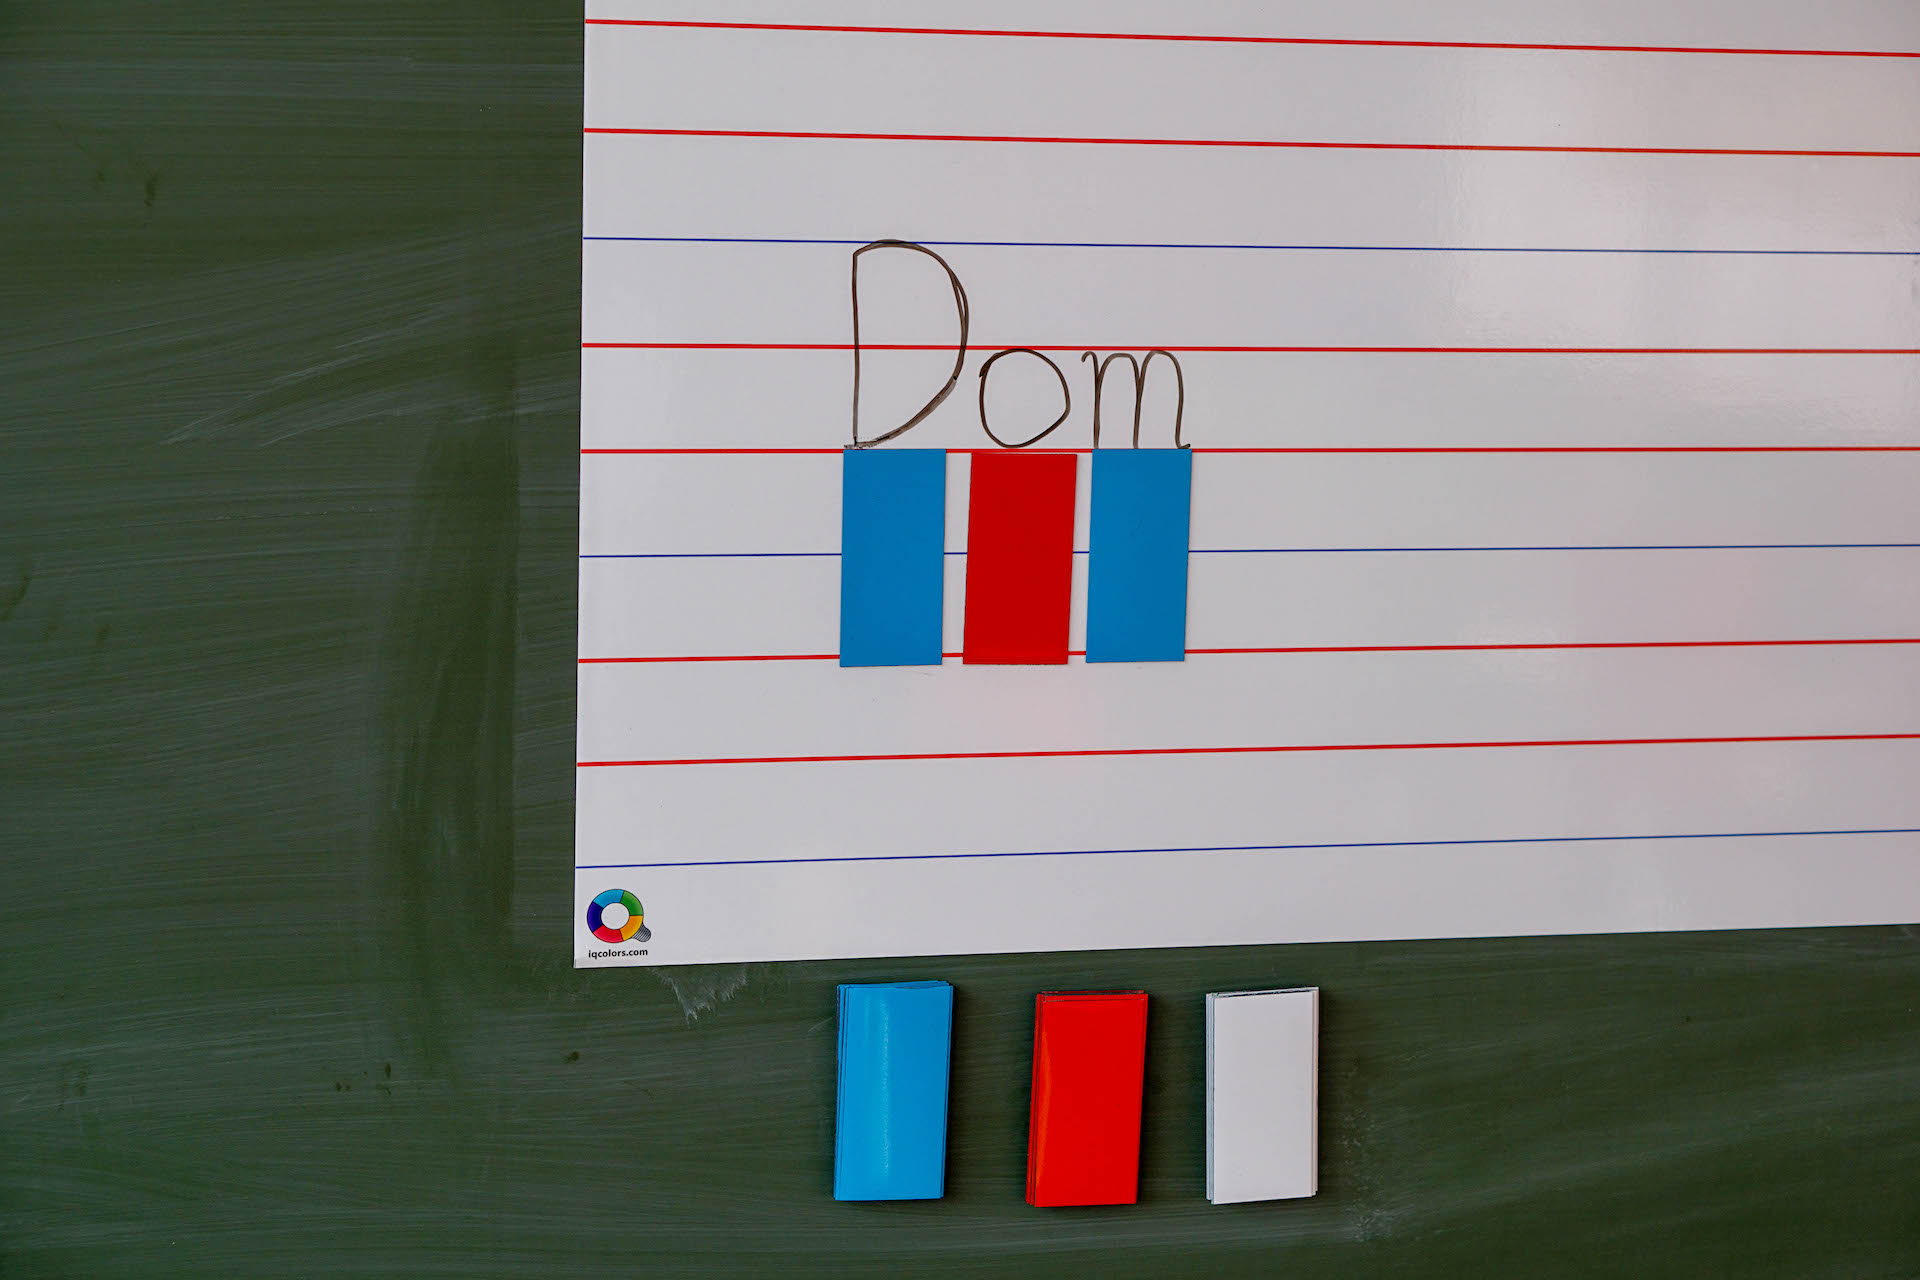 Dom
iqcolors.com